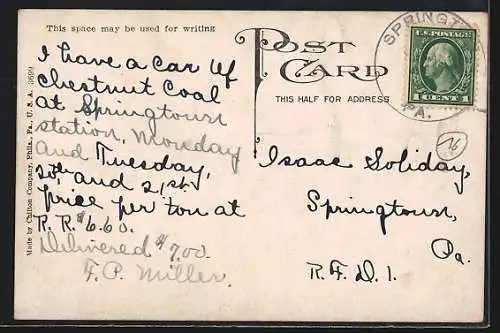 This space may be used for writing
I have a car of
Chestnut Coal
at Springtown
station, Monday
and Tuesday,
20th and 21st
price per ton at
R.R. $6.60.
Delivered $7.00.
F. P. Miller.
Made by Chilton Company, Phila., Pa., U. S. A.
POST CARD
THIS HALF FOR ADDRESS
SPRINGT
PA.
U.S. POSTAGE
1 CENT 1
76
Isaac Soliday,
Springtown,
Pa.
R.F.D. 1.